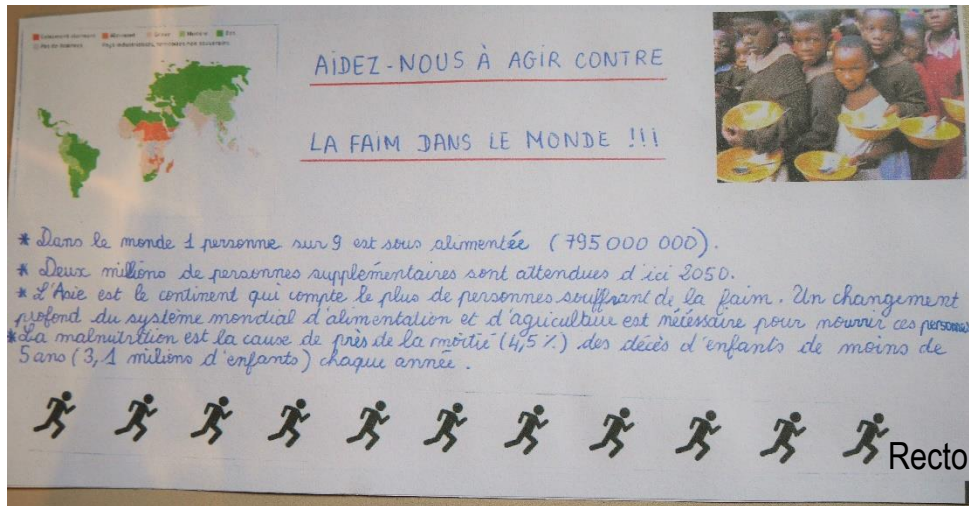 Alarmant Grave Modéré Bas
Pas de données Pays industrialisés,
AIDEZ-NOUS À AGIR CONTRE
LA FAIM DANS LE MONDE !!!
* Dans le monde 1 personne sur 9 est sous alimentée (795 000 000).
* Deux millions de personnes supplémentaires sont attendues d'ici 2050.
* L'Asie est le continent qui compte le plus de personnes souffrant de la faim. Un changement
profond du système mondial d'alimentation et d'agriculture est nécessaire pour nourrir ces personnes
* La malnutrition est la cause de près de la moitié (4,5 %) des décès d'enfants de moins de
5 ans (3,1 milions d'enfants) chaque année.
Recto